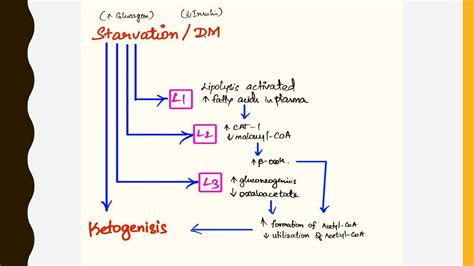 (↑ Glucagon) (↓ Insulin)
Starvation / DM
L1
Lipolysis activated
↑ fatty acids in plasma
L2
↑ CAT-1
↓ malonyl-CoA
↑ β-oxdn.
L3
↑ gluconeogenisis
↓ oxaloacetate
Ketogenisis
↑ formation of Acetyl-CoA
↓ utilization of Acetyl-CoA